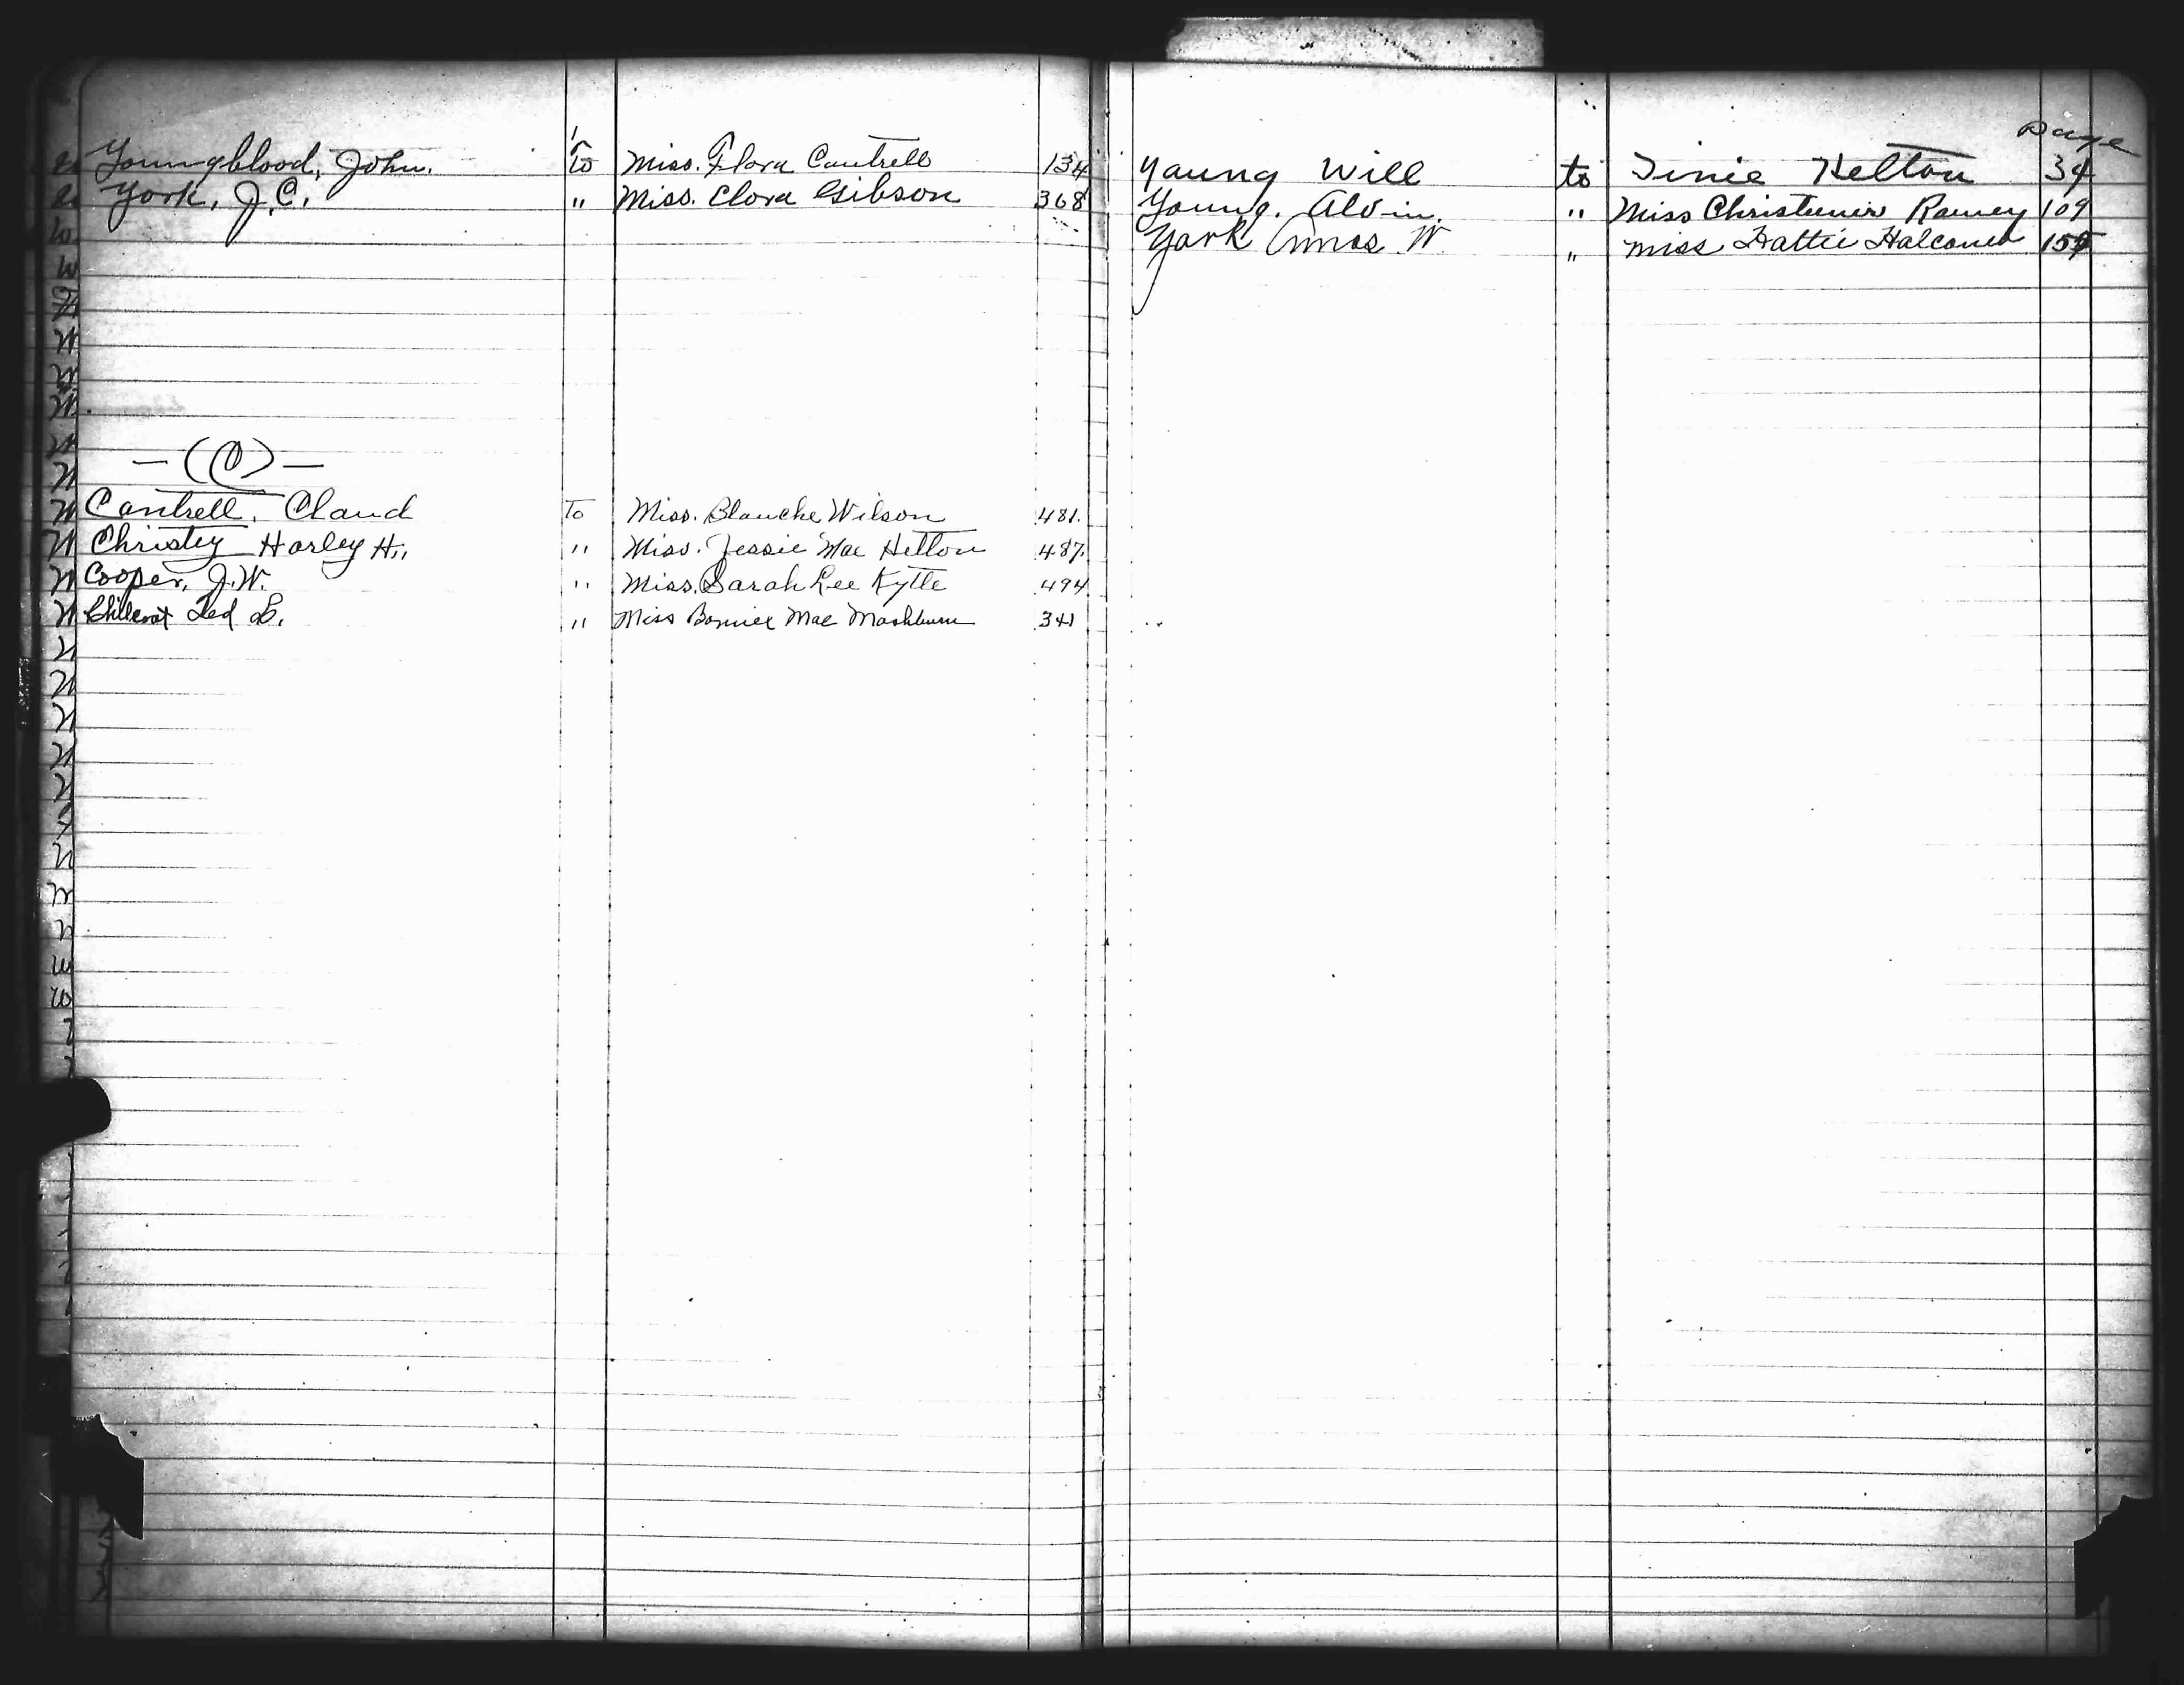 Youngblood, John. to Miss. Flora Cantrell 134
York, J.C. " Miss. Clora Gibson 368
— (C) —
Cantrell, Claud To Miss. Blanche Wilson 481.
Christey Harley H., " Miss. Jessie Mae Helton 487.
Cooper, J.W. " Miss. Sarah Lee Kytle 494
Ted L. " Miss Bonnie Mae Mashburn 341
page
Young Will to Tinie Helton 34
Young. Alvin. " Miss Ramey 109
York Amos W. " Miss Hattie